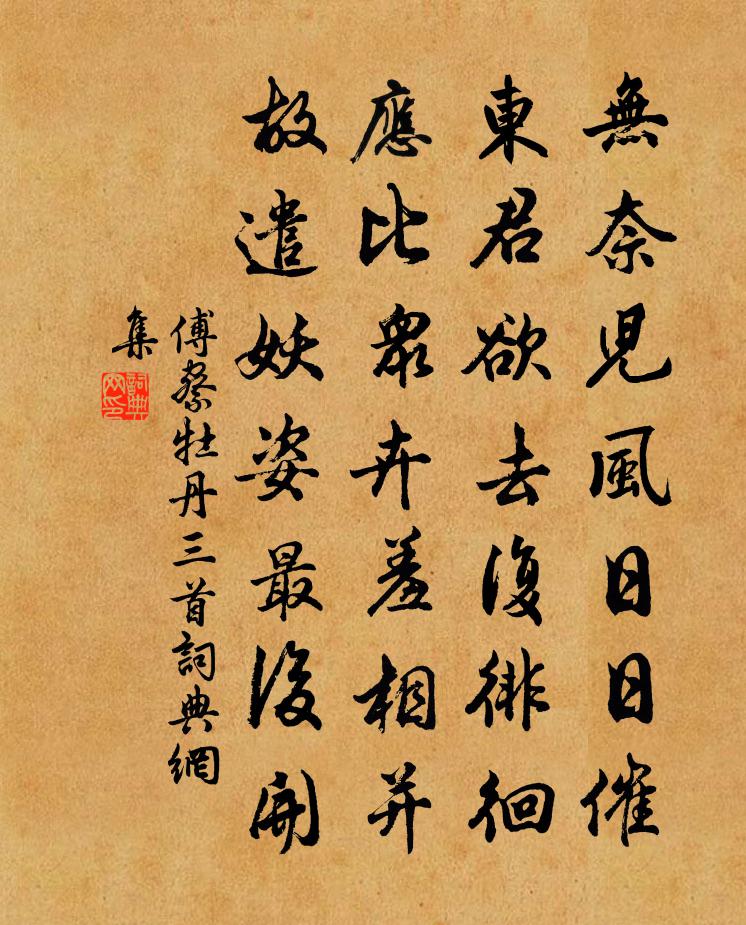 無奈兒風日日催
東君欲去復徘徊
應比眾卉羞相并
故遣妖姿最後開
傅察牡丹三首詞典網
集
詞典
網印